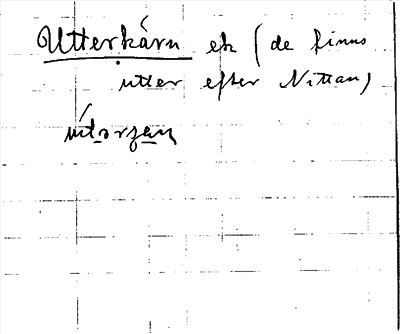 Utterkärn ek (de finns
utter efter Nittan)